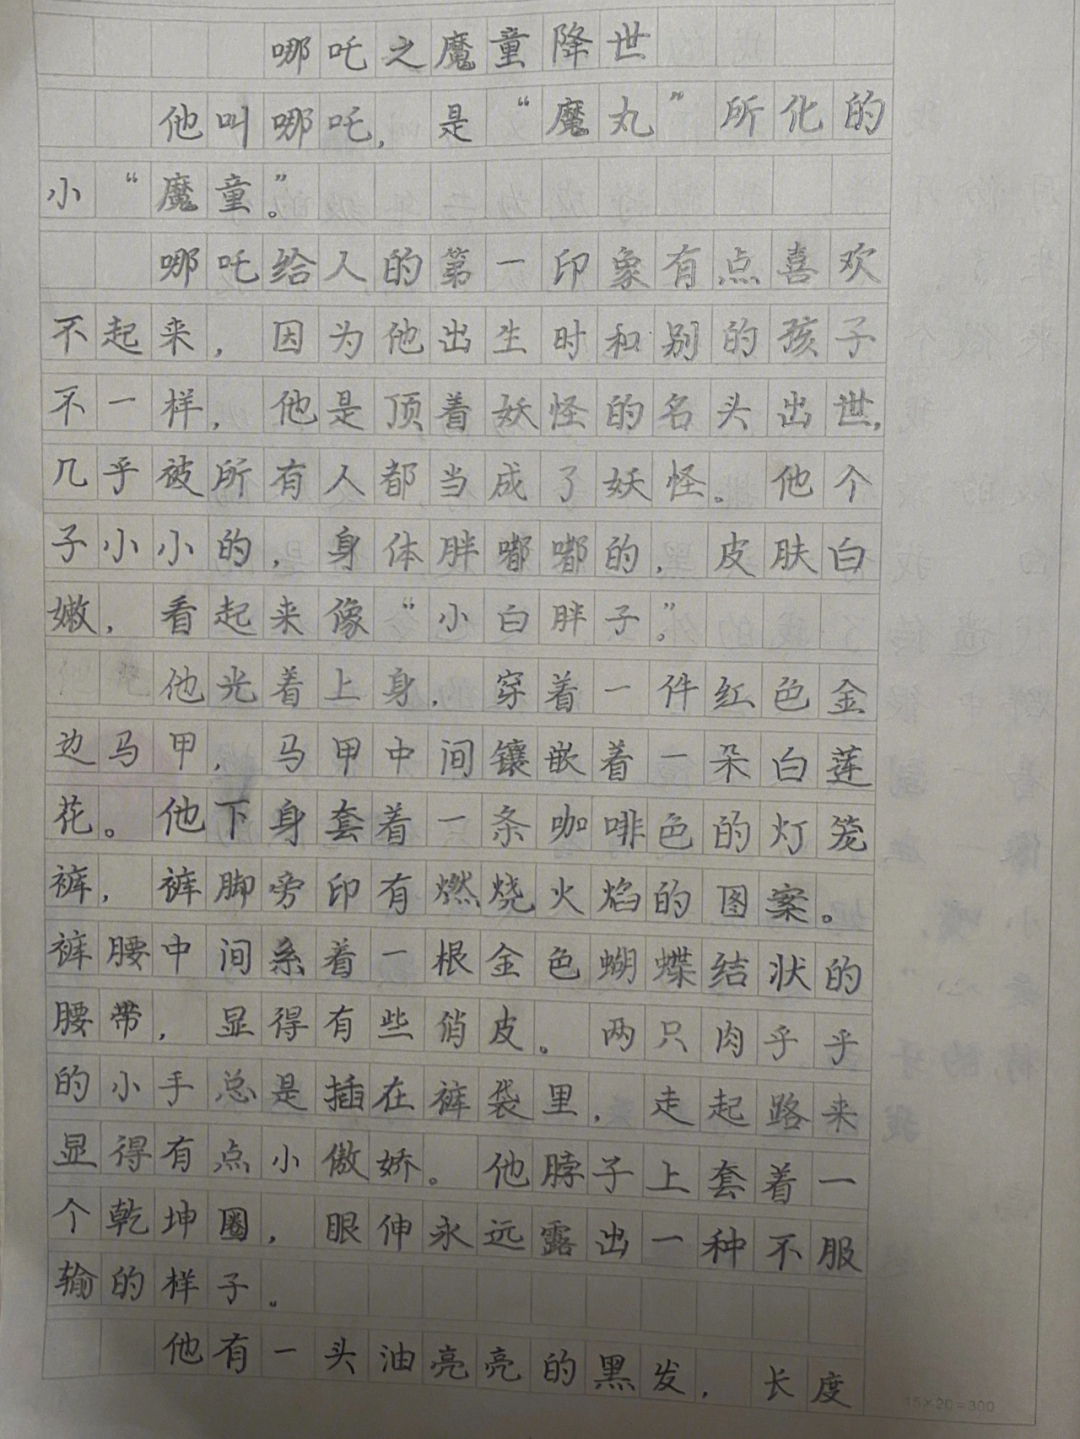 哪吒之魔童降世
他叫哪吒，是“魔丸”所化的
小“魔童”。
哪吒给人的第一印象有点喜欢
不起来，因为他出生时和别的孩子
不一样，他是顶着妖怪的名头出世，
几乎被所有人都当成了妖怪。他个
子小小的，身体胖嘟嘟的，皮肤白
嫩，看起来像“小白胖子”。
他光着上身，穿着一件红色金
边马甲，马甲中间镶嵌着一朵白莲
花。他下身套着一条咖啡色的灯笼
裤，裤脚旁印有燃烧火焰的图案。
裤腰中间系着一根金色蝴蝶结状的
腰带，显得有些俏皮。两只肉乎乎
的小手总是插在裤袋里，走起路来
显得有点小傲娇。他脖子上套着一
个乾坤圈，眼伸永远露出一种不服
输的样子。
他有一头油亮亮的黑发，长度
15×20=300